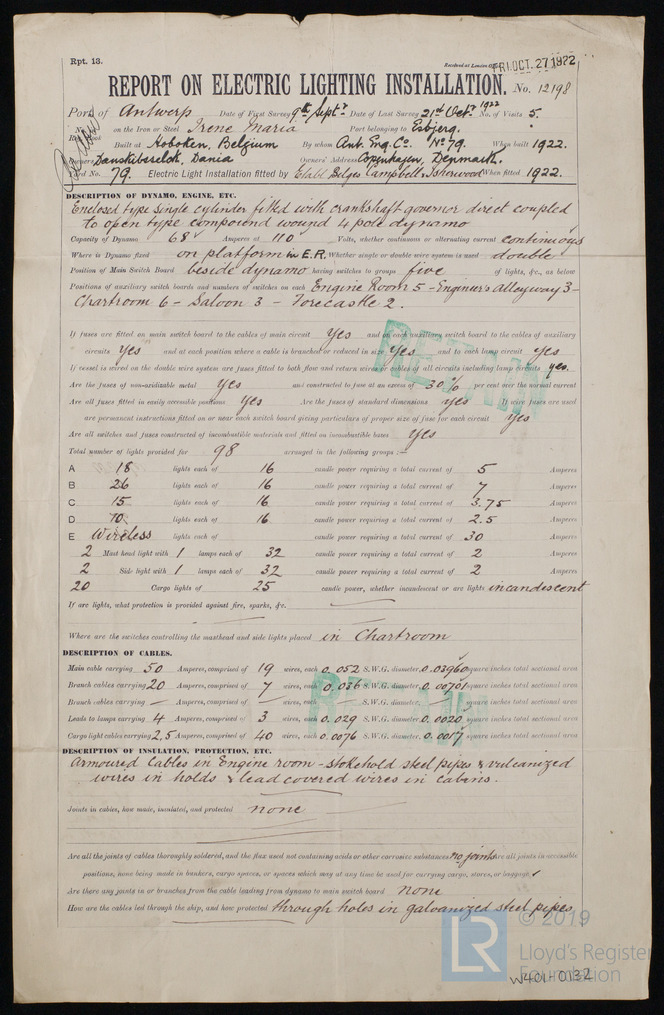 Rpt. 13.
Received at London Office FRI. OCT. 27 1922
REPORT ON ELECTRIC LIGHTING INSTALLATION. No. 12198
Port of Antwerp Date of First Survey 9th Septr Date of Last Survey 21st Octr 1922 No. of Visits 5.
on the Iron or Steel Irene Maria Port belonging to Esbjerg.
Built at Hoboken, Belgium By whom Ant. Eng. Co. No 79. When built 1922.
Owners Danskiberelok, Dania Owners' Address Copenhagen, Denmark.
Yard No. 79. Electric Light Installation fitted by Etabl Belges Campbell & Isherwood When fitted 1922.
DESCRIPTION OF DYNAMO, ENGINE, ETC.
Enclosed type single cylinder fitted with crankshaft governor direct coupled
to open type compound wound 4 pole dynamo
Capacity of Dynamo 68 Amperes at 110 Volts, whether continuous or alternating current continuous
Where is Dynamo fixed on platform in E.R. Whether single or double wire system is used double
Position of Main Switch Board beside dynamo having switches to groups five of lights, &c., as below
Positions of auxiliary switch boards and numbers of switches on each Engine Room 5 - Engineer's Alleyway 3 -
Chartroom 6 - Saloon 3 - Forecastle 2.
If fuses are fitted on main switch board to the cables of main circuit Yes and on each auxiliary switch board to the cables of auxiliary
circuits Yes and at each position where a cable is branched or reduced in size Yes and to each lamp circuit yes
If vessel is wired on the double wire system are fuses fitted to both flow and return wires or cables of all circuits including lamp circuits yes.
Are the fuses of non-oxidizable metal Yes and constructed to fuse at an excess of 30% per cent over the normal current
Are all fuses fitted in easily accessible positions Yes Are the fuses of standard dimensions yes If wire fuses are used
are permanent instructions fitted on or near each switch board giving particulars of proper size of fuse for each circuit yes
Are all switches and fuses constructed of incombustible materials and fitted on incombustible bases Yes
Total number of lights provided for 98 arranged in the following groups :—
A 18 lights each of 16 candle power requiring a total current of 5 Amperes
B 26 lights each of 16 candle power requiring a total current of 7 Amperes
C 15 lights each of 16 candle power requiring a total current of 3.75 Amperes
D 10 lights each of 16 candle power requiring a total current of 2.5 Amperes
E Wireless lights each of candle power requiring a total current of 30 Amperes
2 Mast head light with 1 lamps each of 32 candle power requiring a total current of 2 Amperes
2 Side light with 1 lamps each of 32 candle power requiring a total current of 2 Amperes
20 Cargo lights of 25 candle power, whether incandescent or arc lights incandescent
If arc lights, what protection is provided against fire, sparks, &c.
Where are the switches controlling the masthead and side lights placed in Chartroom
DESCRIPTION OF CABLES.
Main cable carrying 50 Amperes, comprised of 19 wires, each 0.052 S.W.G. diameter, 0.03960 square inches total sectional area
Branch cables carrying 20 Amperes, comprised of 7 wires, each 0.036 S.W.G. diameter, 0.00701 square inches total sectional area
Branch cables carrying — Amperes, comprised of — wires, each — S.W.G. diameter, — square inches total sectional area
Leads to lamps carrying 4 Amperes, comprised of 3 wires, each 0.029 S.W.G. diameter, 0.0020 square inches total sectional area
Cargo light cables carrying 2.5 Amperes, comprised of 40 wires, each 0.0076 S.W.G. diameter, 0.0017 square inches total sectional area
RETAIN
RETAIN
DESCRIPTION OF INSULATION, PROTECTION, ETC.
Armoured Cables in Engine room - stokehold steel pipes & vulcanized
wires in holds & lead covered wires in cabins.
Joints in cables, how made, insulated, and protected none
Are all the joints of cables thoroughly soldered, and the flux used not containing acids or other corrosive substances no joints Are all joints in accessible
positions, none being made in bunkers, cargo spaces, or spaces which may at any time be used for carrying cargo, stores, or baggage
Are there any joints in or branches from the cable leading from dynamo to main switch board none
How are the cables led through the ship, and how protected through holes in galvanized steel pipes
LR © 2019
Lloyd's Register
Foundation
W401-0132